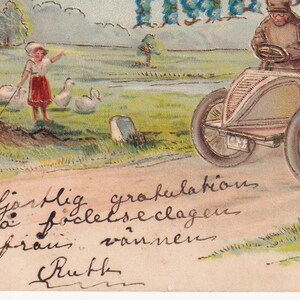 järtlig gratulation
å födelsedagen
från vännen
Ruth